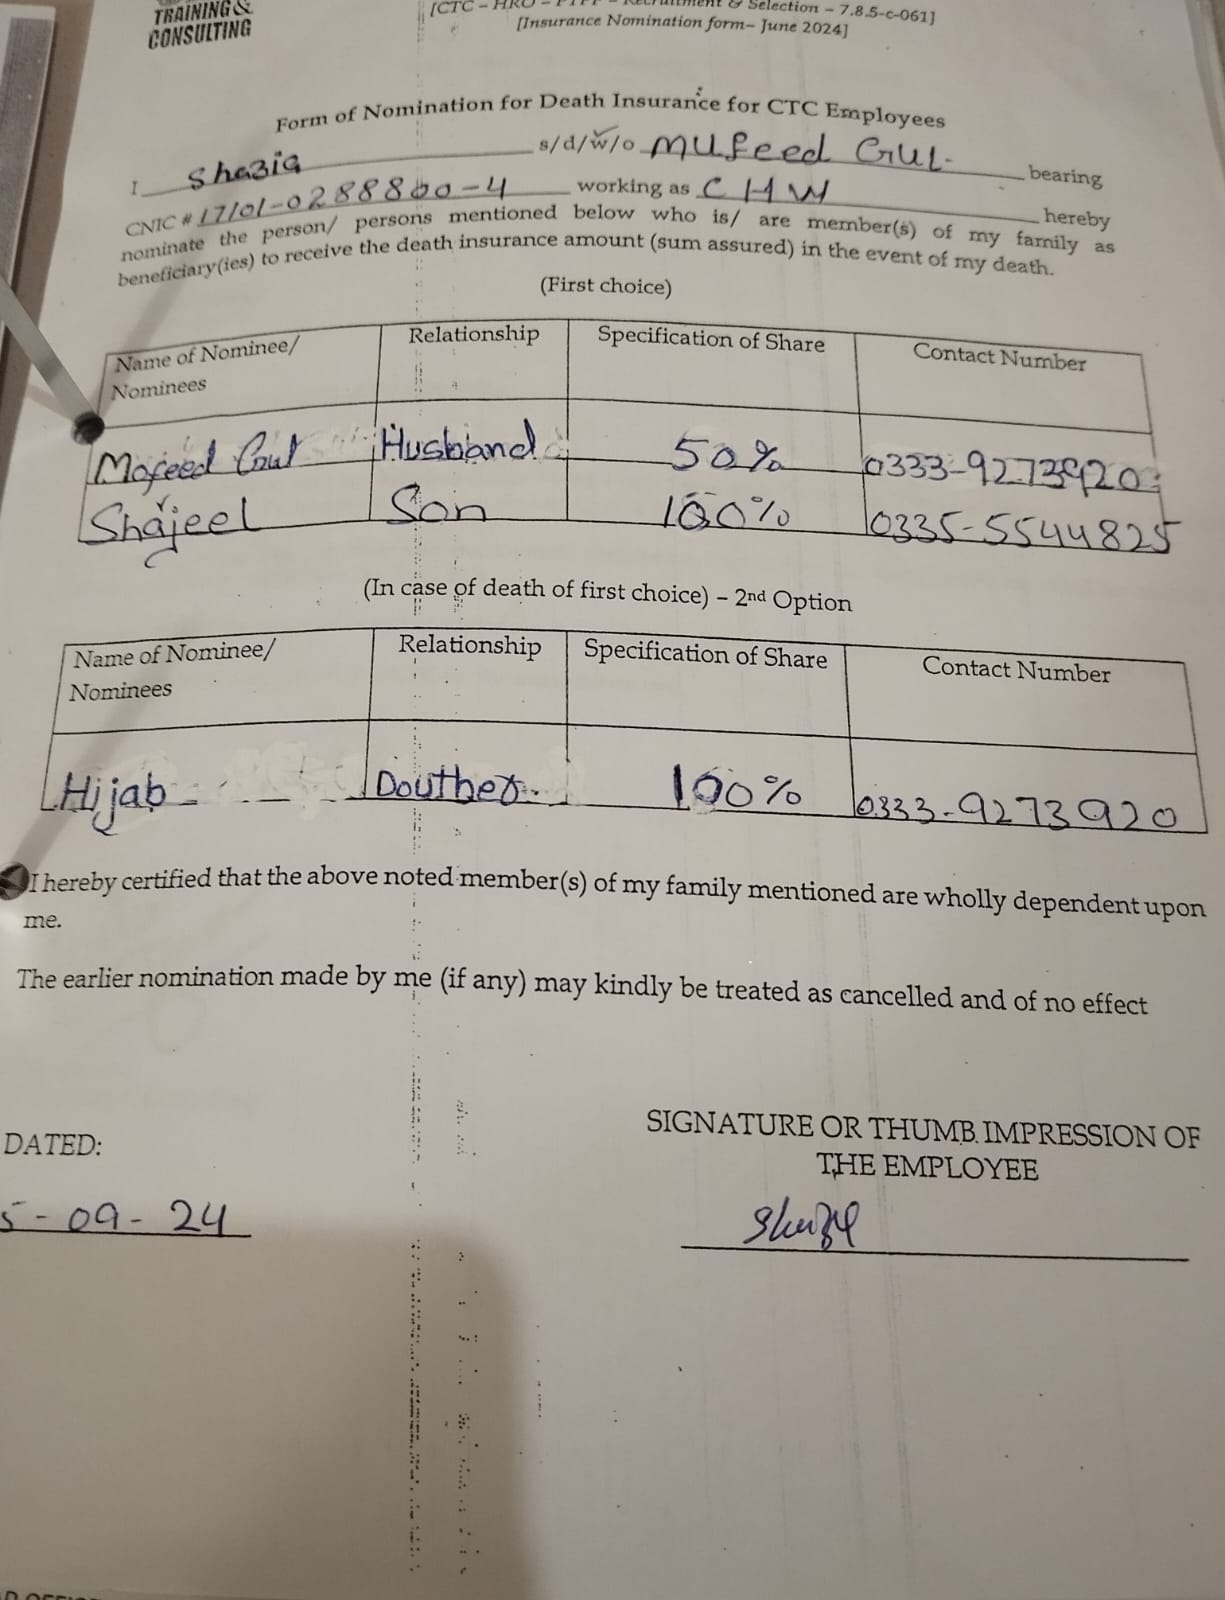 TRAINING &
CONSULTING
[CTC – HRO – PTPP – Recruitment & Selection – 7.8.5-c-061]
[Insurance Nomination form– June 2024]
Form of Nomination for Death Insurance for CTC Employees
I Shazia s/d/w/o Mufeed Gul. bearing
CNIC # 17101-0288800-4 working as CHW hereby
nominate the person/ persons mentioned below who is/ are member(s) of my family as
beneficiary(ies) to receive the death insurance amount (sum assured) in the event of my death.
(First choice)
Name of Nominee/ Relationship Specification of Share Contact Number
Nominees
Mofeed Gul Husband 50% 0333-9273920
Shajeel Son 100% 0335-5544825
(In case of death of first choice) – 2nd Option
Name of Nominee/ Relationship Specification of Share Contact Number
Nominees
Hijab Douther. 100% 0333-9273920
I hereby certified that the above noted member(s) of my family mentioned are wholly dependent upon
me.
The earlier nomination made by me (if any) may kindly be treated as cancelled and of no effect
DATED:
SIGNATURE OR THUMB IMPRESSION OF
THE EMPLOYEE
5-09-24